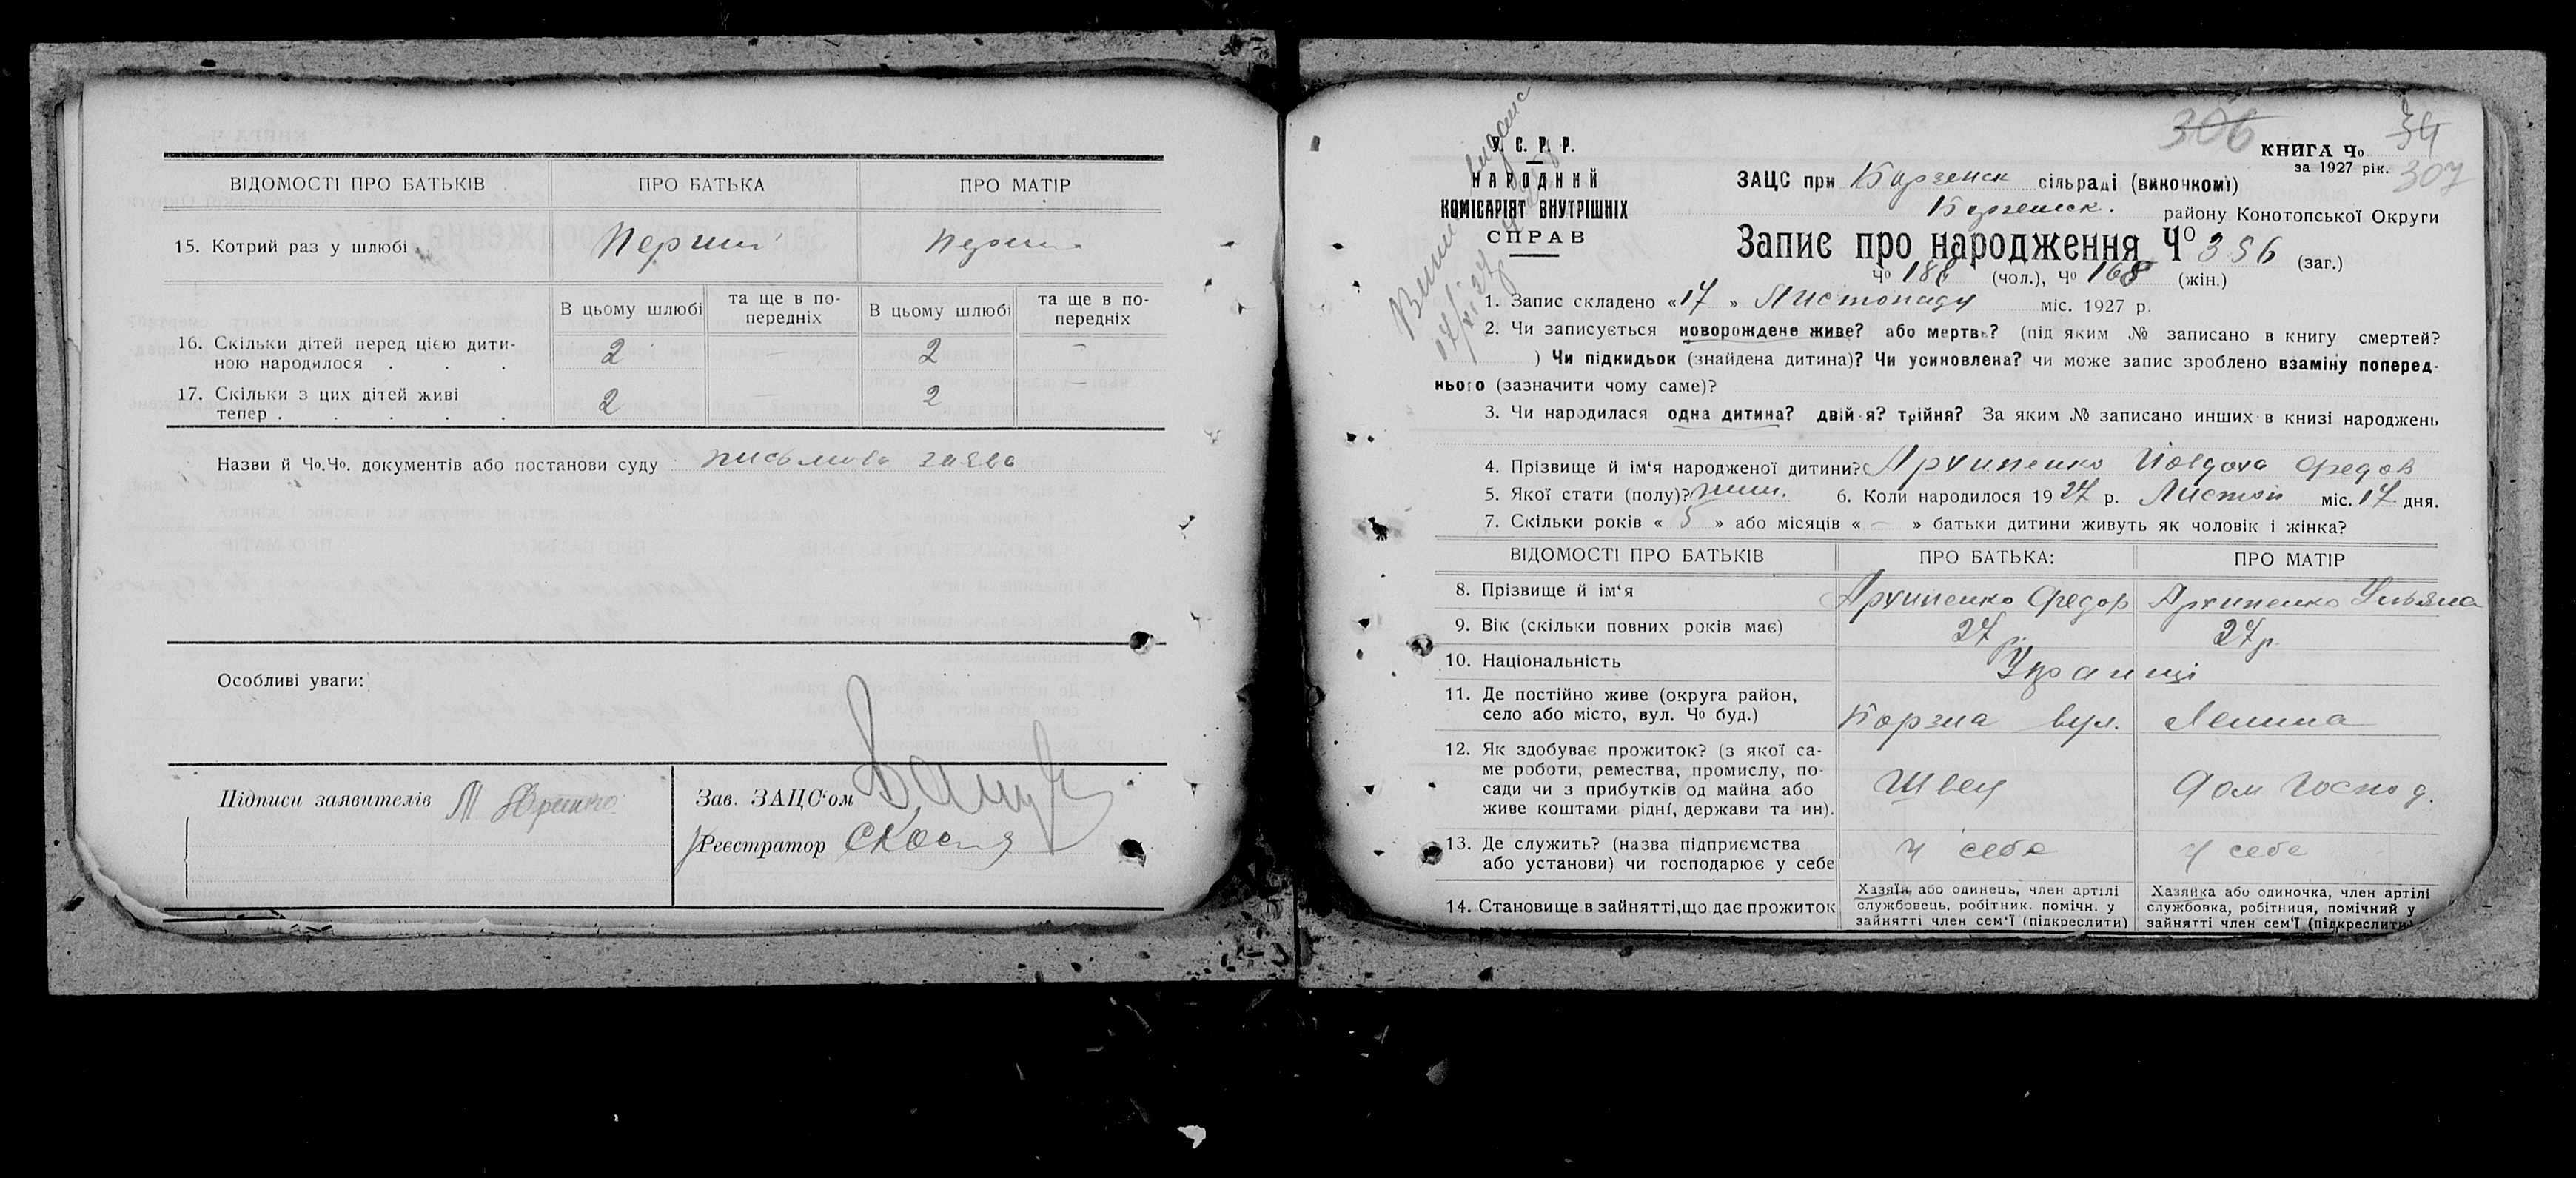 ВІДОМОСТІ ПРО БАТЬКІВ ПРО БАТЬКА ПРО МАТІР
15. Котрий раз у шлюбі Перший
В цьому шлюбі та ще в по-передніх В цьому шлюбі та ще в по-передніх
16. Скільки дітей перед цією дити-
ною народилося . . . 2 — 2 —
17. Скільки з цих дітей живі
тепер . . . . . 2 — 2 —
Назви й Чо.Чо. документів або постанови суду письмова заява
Особливі уваги:
Підписи заявителів
Зав. ЗАЦС'ом
Реєстратор
306 34
307
У. С. Р. Р.
НАРОДНИЙ
КОМІСАРІЯТ ВНУТРІШНІХ
СПРАВ
КНИГА Чо
за 1927 рік.
ЗАЦС при Борзенск сільраді (викочкомі)
Борзенск. району Конотопської Округи
Запис про народження Чо 356 (заг.)
Чо 188 (чол.), Чо 168 (жін.)
1. Запис складено «17» Листопаду міс. 1927 р.
2. Чи записується новорождене живе? або мертве? (під яким № записано в книгу смертей?
) Чи підкидьок (знайдена дитина)? Чи усиновлена? чи може запис зроблено взаміну поперед-
нього (зазначити чому саме)?
3. Чи народилася одна дитина? двійня? трійня? За яким № записано инших в книзі народжень
4. Прізвище й ім'я народженої дитини? Архипенко Федов
5. Якої стати (полу)? 6. Коли народилося 1927 р. Листоп міс. 17 дня.
7. Скільки років « 5 » або місяців « — » батьки дитини живуть як чоловік і жінка?
ВІДОМОСТІ ПРО БАТЬКІВ ПРО БАТЬКА: ПРО МАТІР
8. Прізвище й ім'я Архипенко Федор Архипенко Ульяна
9. Вік (скільки повних років має) 27 р. 27 р.
10. Національність Українці
11. Де постійно живе (округа район,
село або місто, вул. Чо буд.) Борзна вул. Леніна
12. Як здобуває прожиток? (з якої са-
ме роботи, ремества, промислу, по-
сади чи з прибутків од майна або
живе коштами рідні, держави та ин). Швец Дом господ.
13. Де служить? (назва підприємства
або установи) чи господарює у себе У себе У себе
14. Становище в зайнятті, що дає прожиток
Хазяїн або одинець, член артілі
службовець, робітник. помічн. у
зайнятті член сем'ї (підкреслити)
Хазяйка або одиночка, член артілі
службовка, робітниця, помічний у
зайнятті член сем'ї (підкреслити)